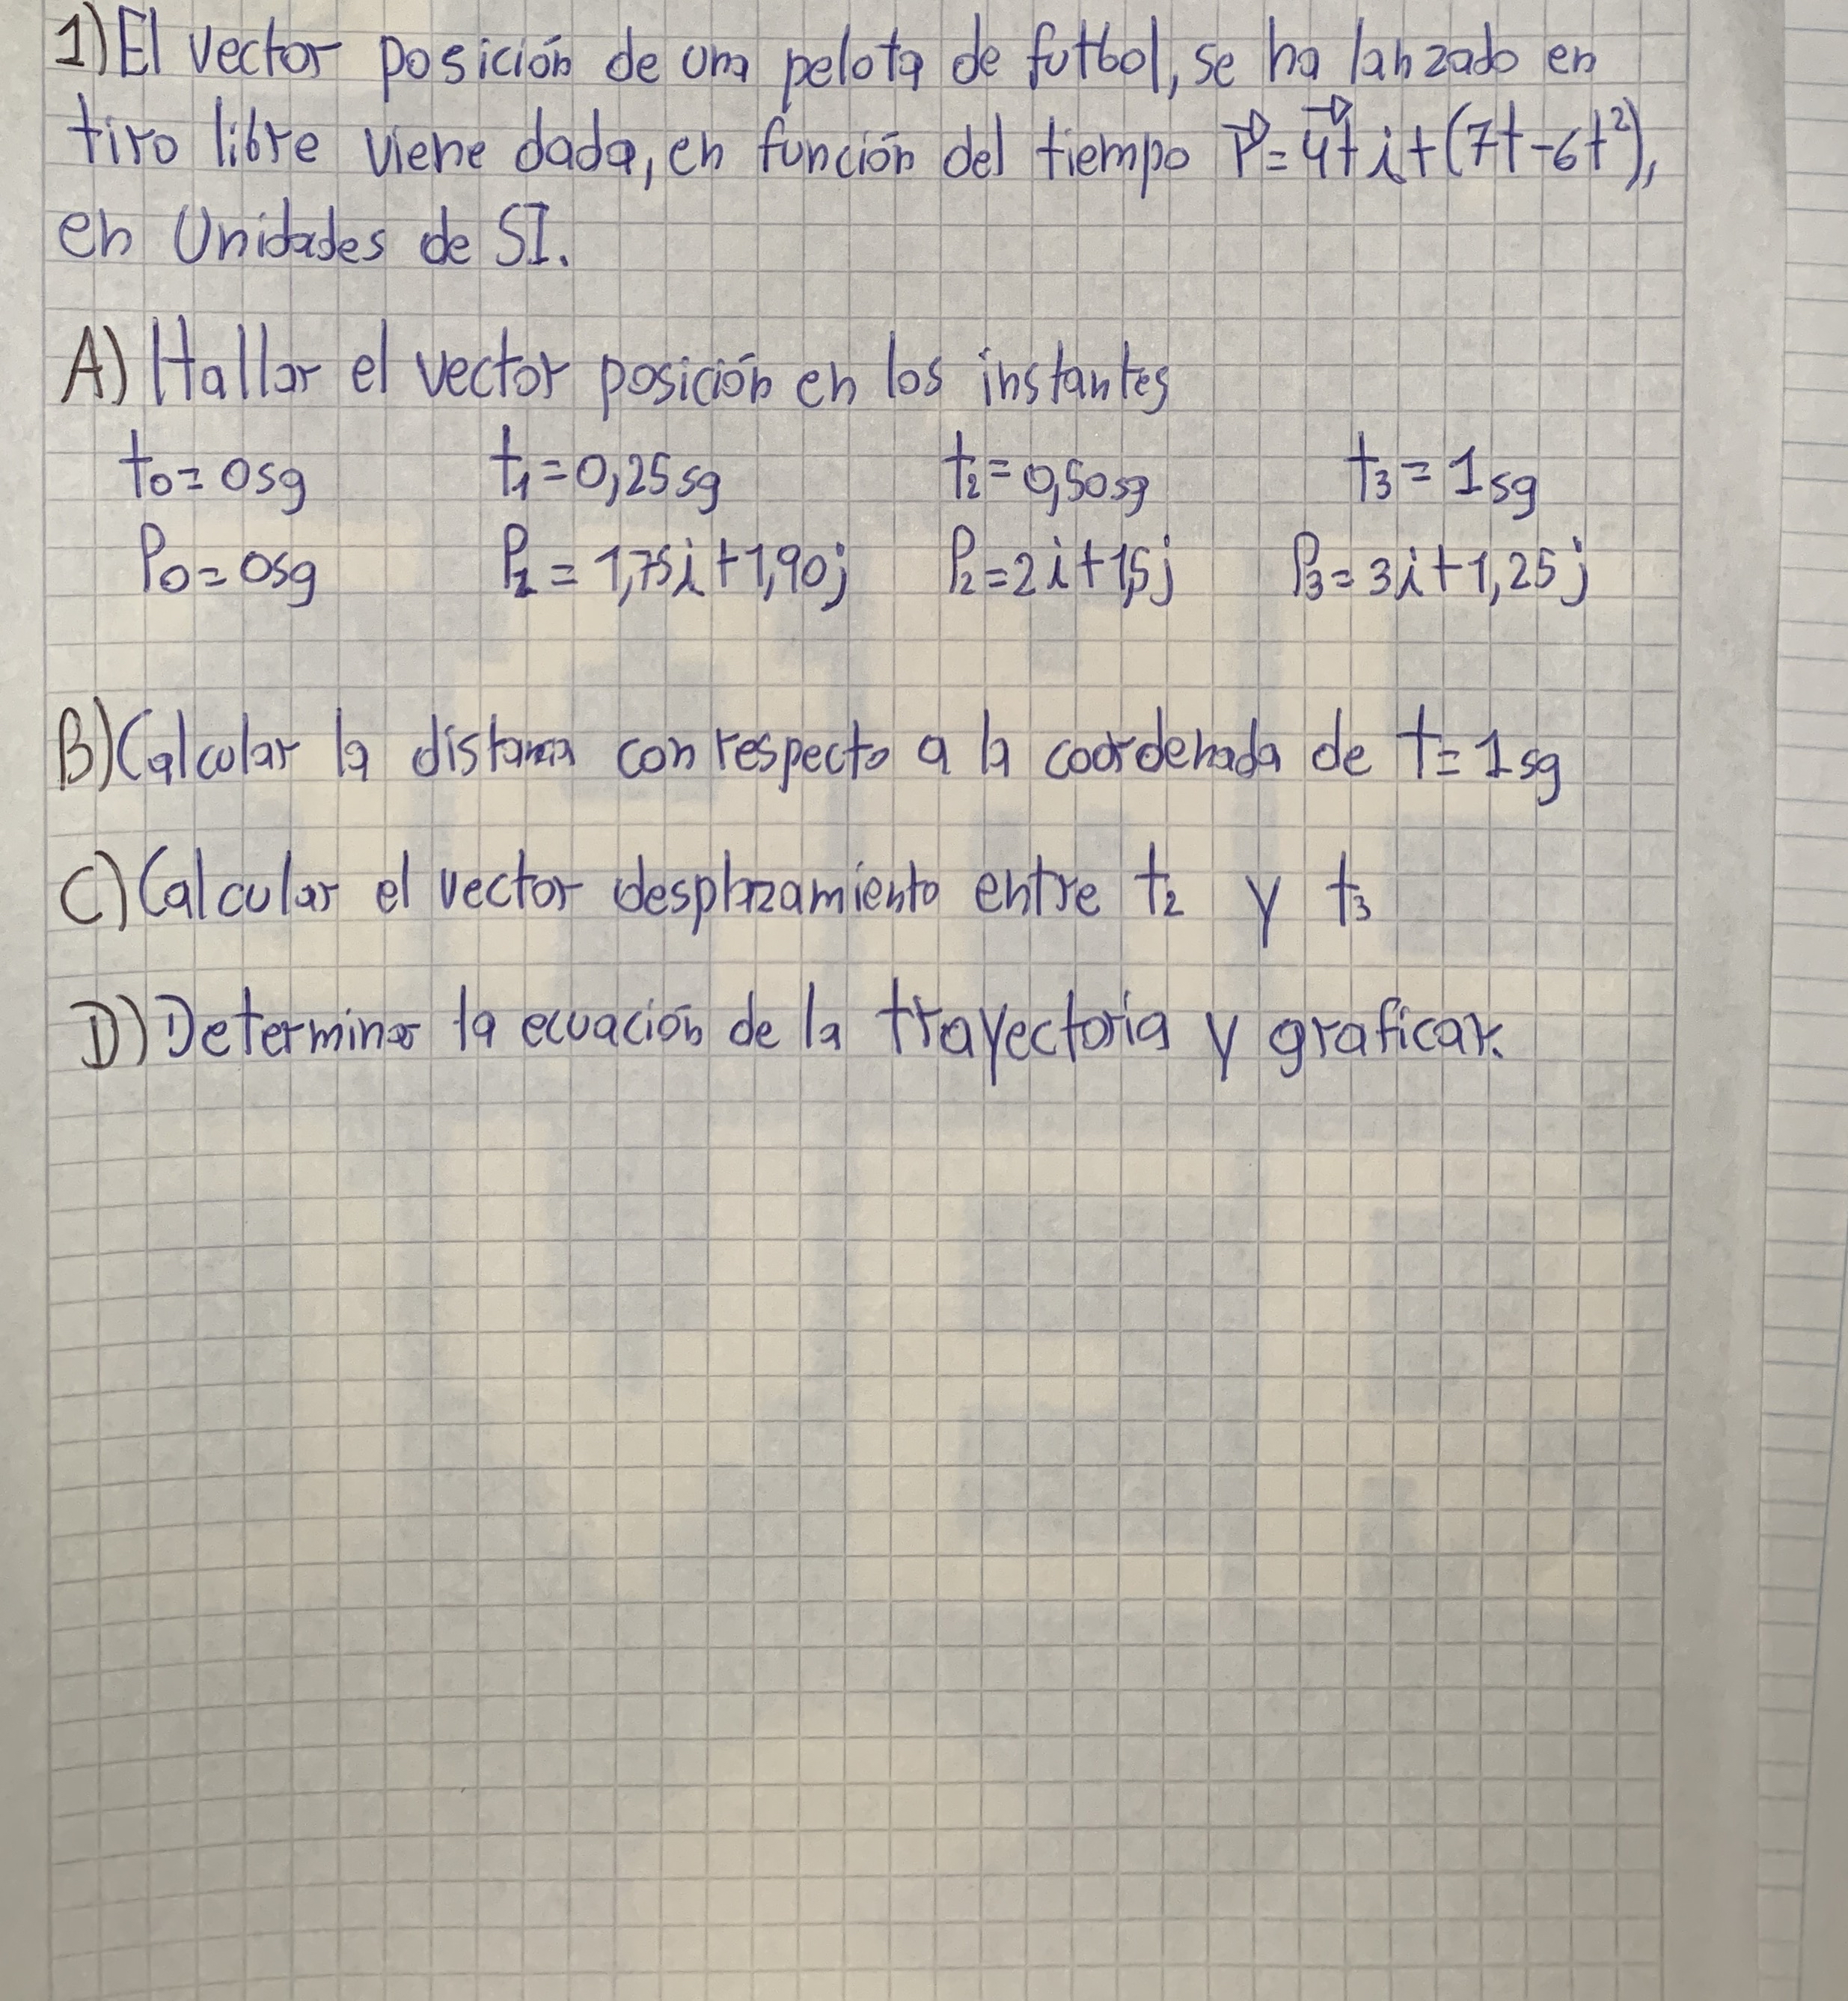 1) El vector posición de una pelota de futbol, se ha lanzado en
tiro libre viene dada, en función del tiempo P⃗=4t⃗ i+(7t-6t²),
en Unidades de SI.
A) Hallar el vector posición en los instantes
t₀=0sg t₁=0,25sg t₂=0,50sg t₃=1sg
P₀=0sg P₁=1,75i+1,90j P₂=2i+1,5j P₃=3i+1,25j
B) Calcular la distancia con respecto a la coordenada de t=1sg
C) Calcular el vector desplazamiento entre t₂ y t₃
D) Determinar la ecuación de la trayectoria y graficar.